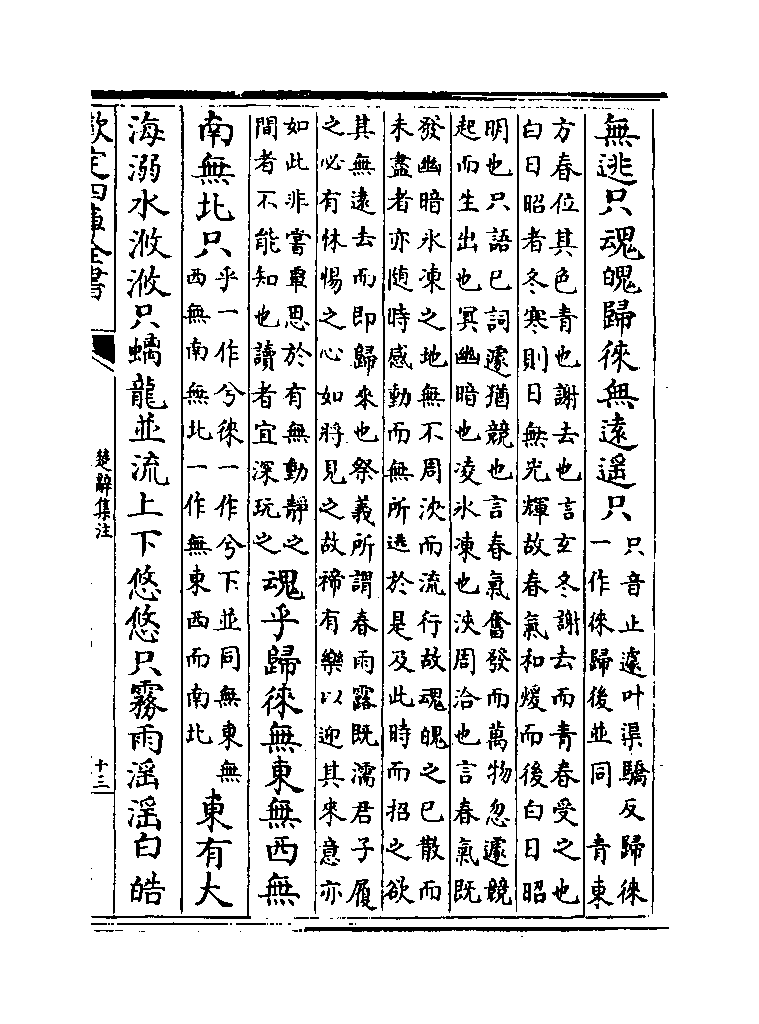 無逃只魂魄歸徠無遠遥只
只音止遠叶渠驕反歸徠
一作徠歸後並同　青東
方春位其色青也謝去也言玄冬謝去而青春受之也
白日昭者冬寒則日無光輝故春氣和煖而後白日昭
明也只語已詞遽猶競也言春氣奮發而萬物忽遽競
起而生出也冥幽暗也凌冰凍也浹周洽也言春氣既
發幽暗冰凍之地無不周浹而流行故魂魄之已散而
未盡者亦隨時感動而無所逃於是及此時而招之欲
其無遠去而即歸來也祭義所謂春雨露既濡君子履
之必有怵惕之心如將見之故禘有樂以迎其來意亦
如此非嘗覃思於有無動靜之
間者不能知也讀者宜深玩之
魂乎歸徠無東無西無
南無北只
乎一作兮徠一作兮下並同無東無
西無南無北一作無東西而南北
東有大
海溺水浟浟只螭龍並流上下悠悠只霧雨淫淫白皓
欽定四庫全書
楚辭集注
十三